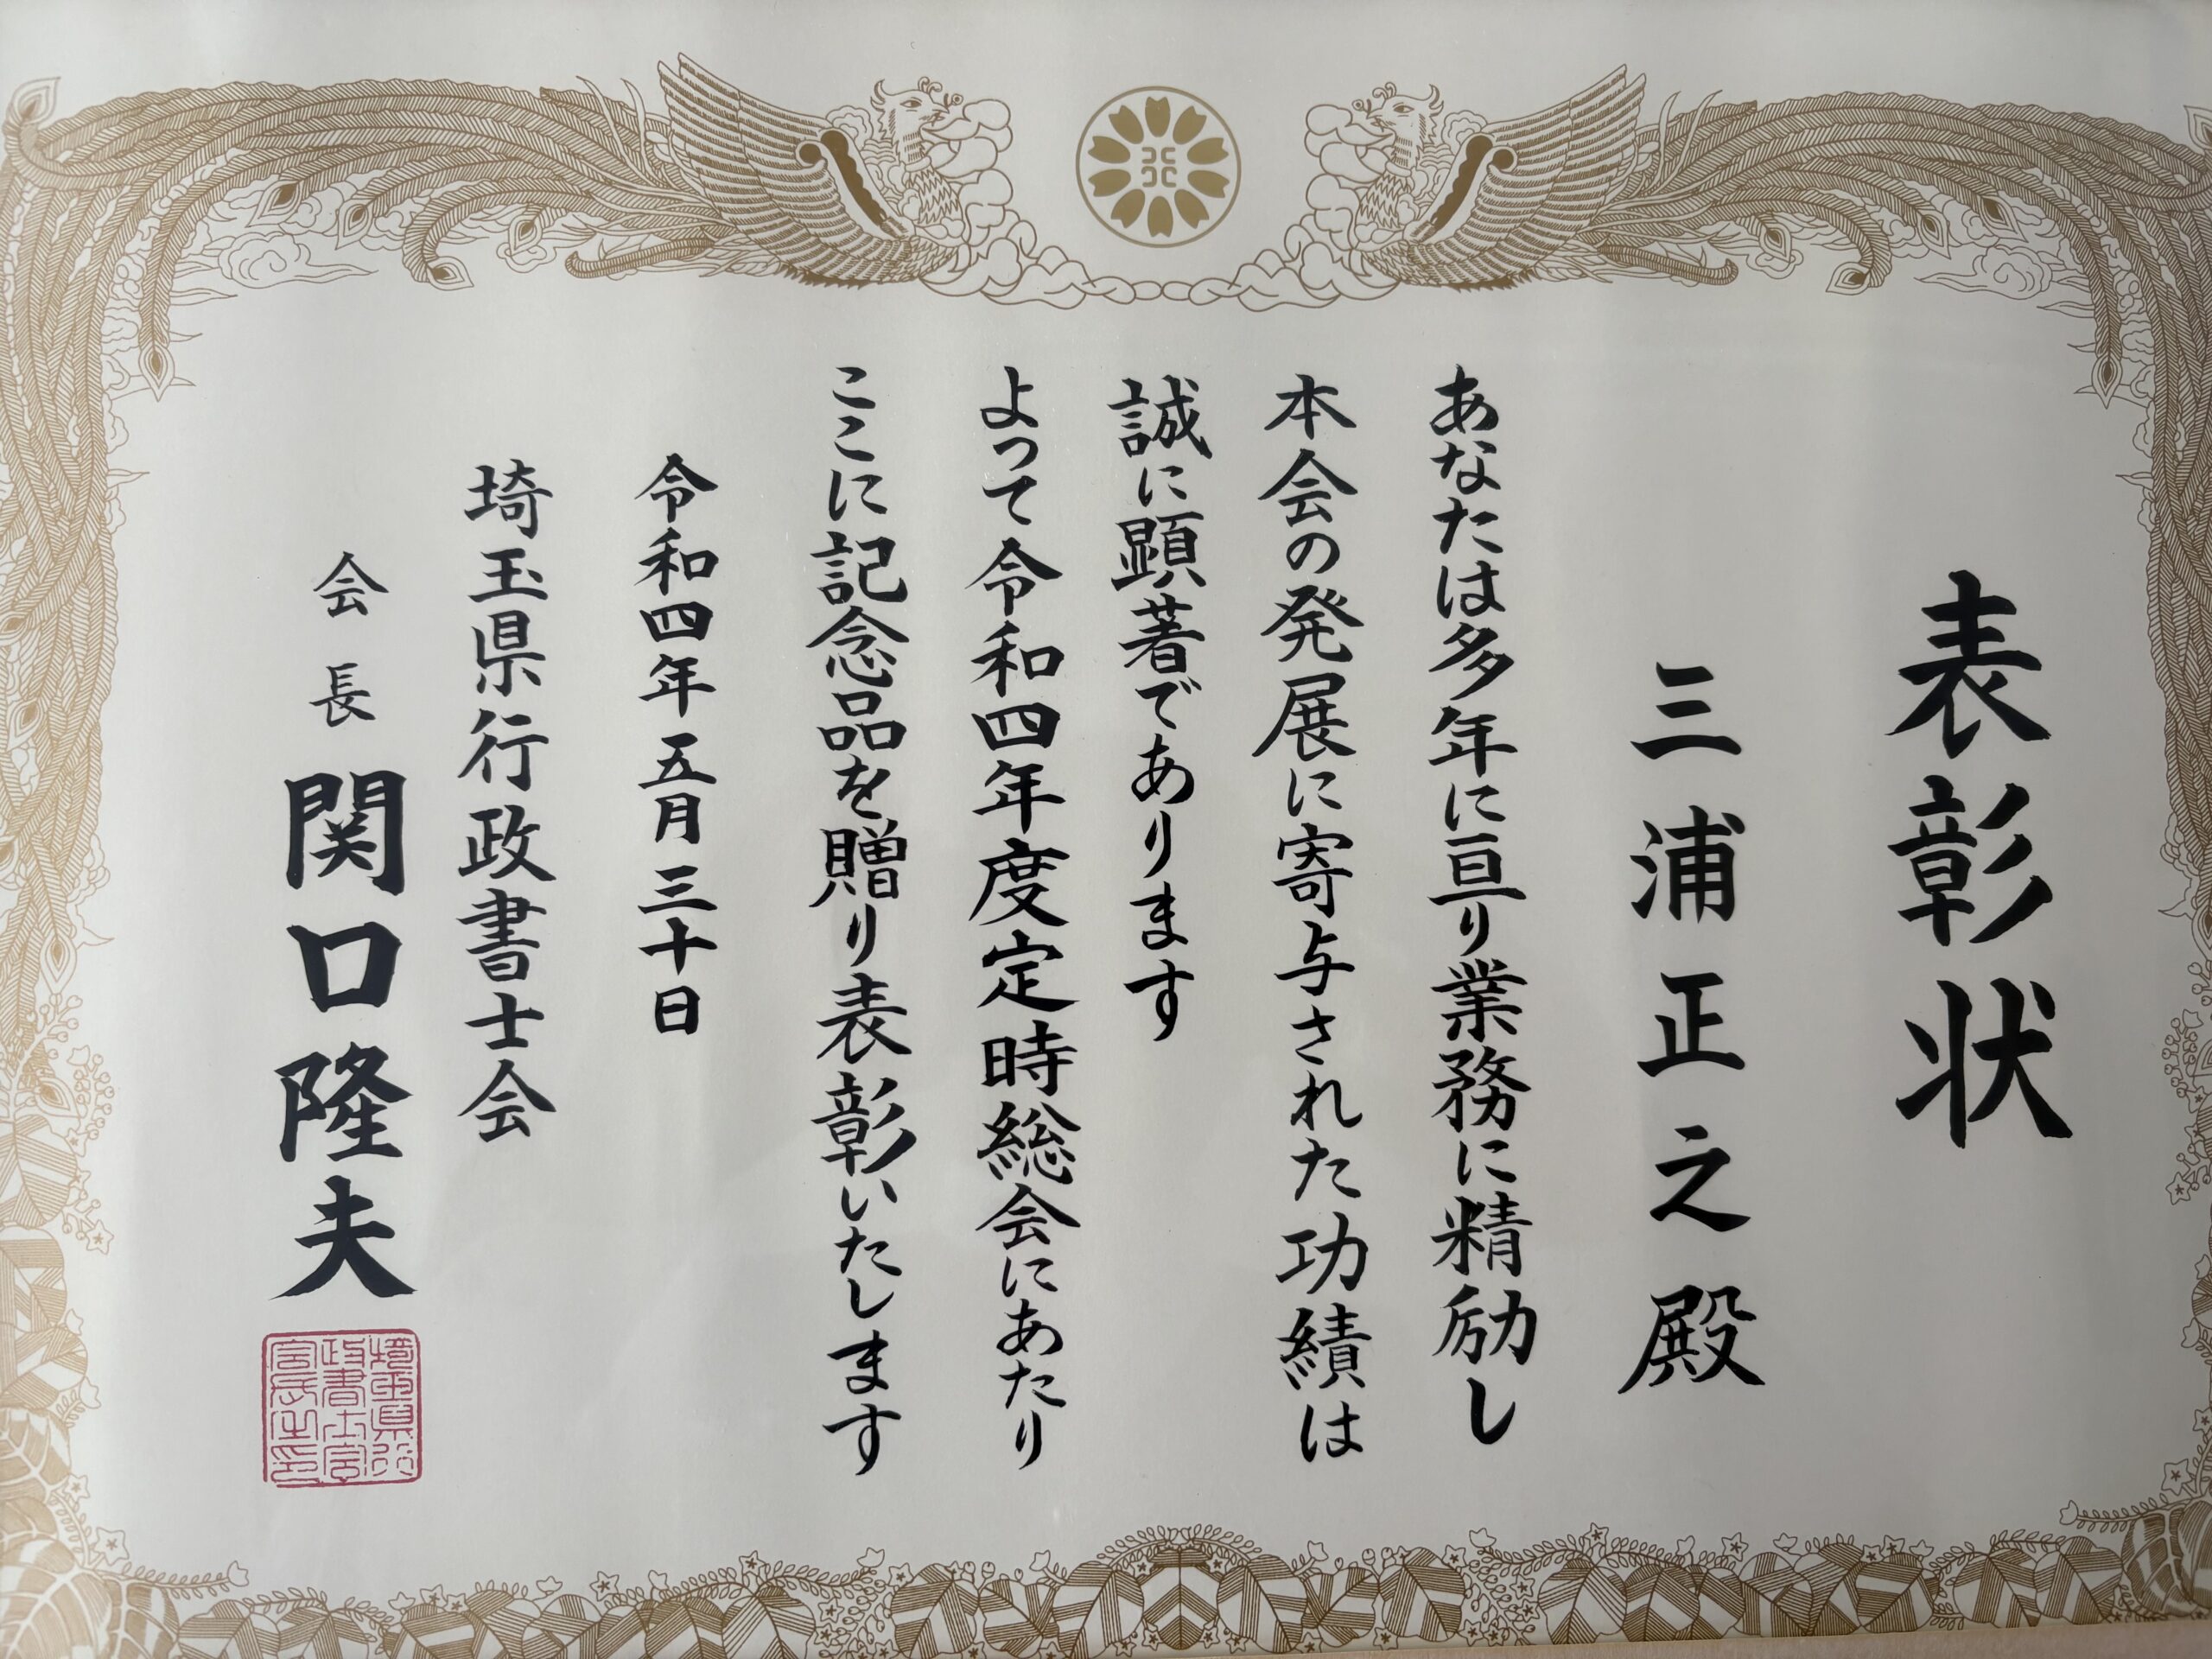 表彰状
三浦正之殿
あなたは多年に亘り業務に精励し
本会の発展に寄与された功績は
誠に顕著であります
よって令和四年度定時総会にあたり
ここに記念品を贈り表彰いたします
令和四年五月三十日
埼玉県行政書士会
会長 関口隆夫
埼玉県行
政書士会
会長之印